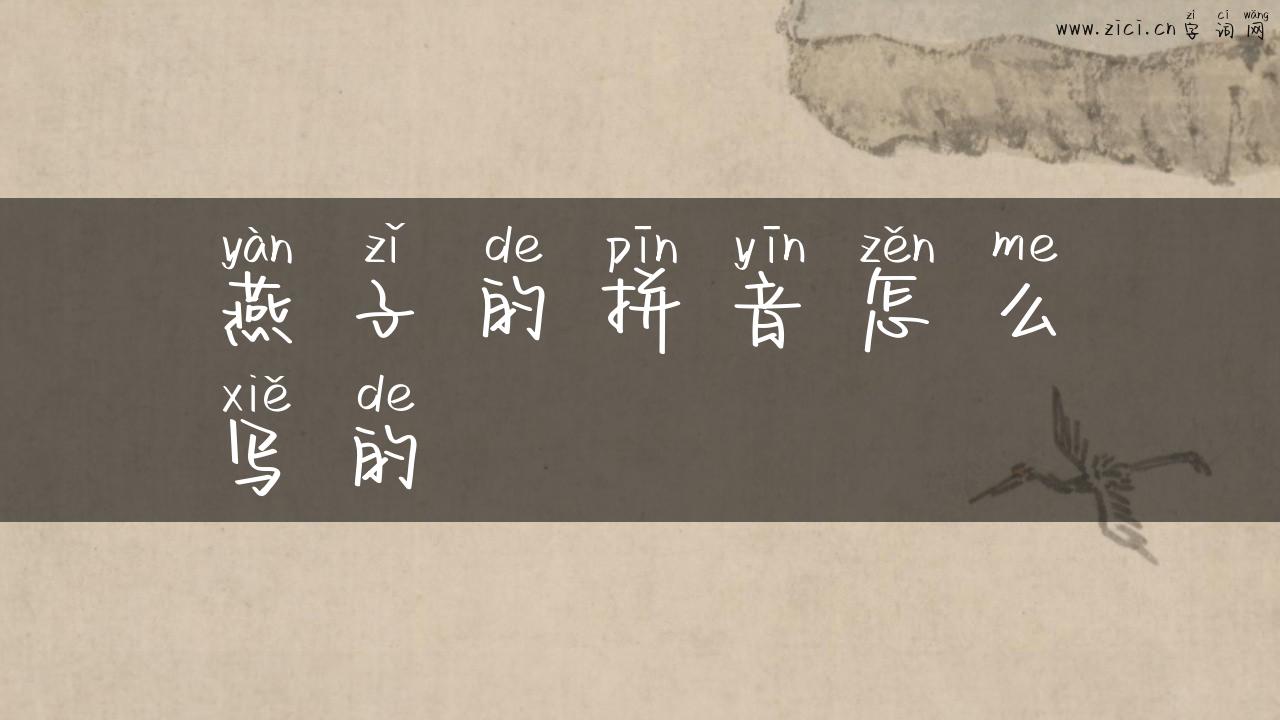 zì cí wǎng
www.zici.cn 字 词 网
yàn zǐ de pīn yīn zěn me
燕 子 的 拼 音 怎 么
xiě de
写 的